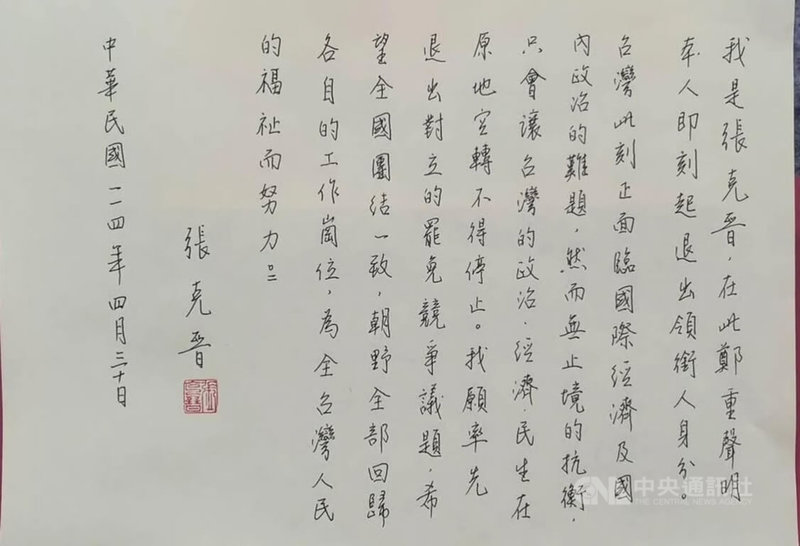 我是張克晉，在此鄭重聲明
本人即刻起退出領銜人身分。
台灣此刻正面臨國際經濟及國
內政治的難題，然而無止境的抗衡，
只會讓台灣的政治．經濟．民生在
原地空轉不得停止。我願率先
退出對立的罷免競爭議題，希
望全國團結一致，朝野全部回歸
各自的工作崗位，為全台灣人民
的福祉而努力。
張克晉
中華民國一一四年四月三十日
中央通訊社
THE CENTRAL NEWS AGENCY